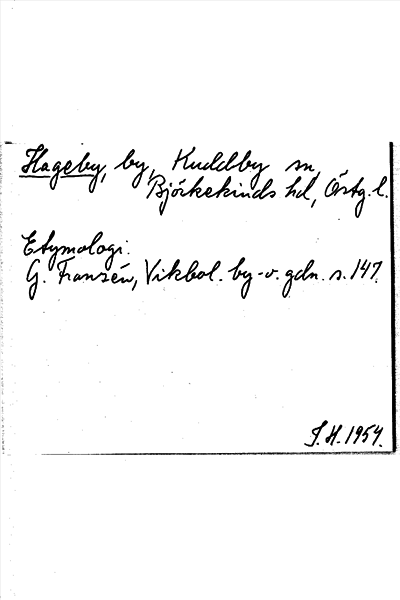 Hageby, by, Kuddby sn,
Björkekinds hd, Östg. l.
Etymologi.
G. Franzén, Vikbol. by- o. gdn. s. 147.
S.H. 1954.